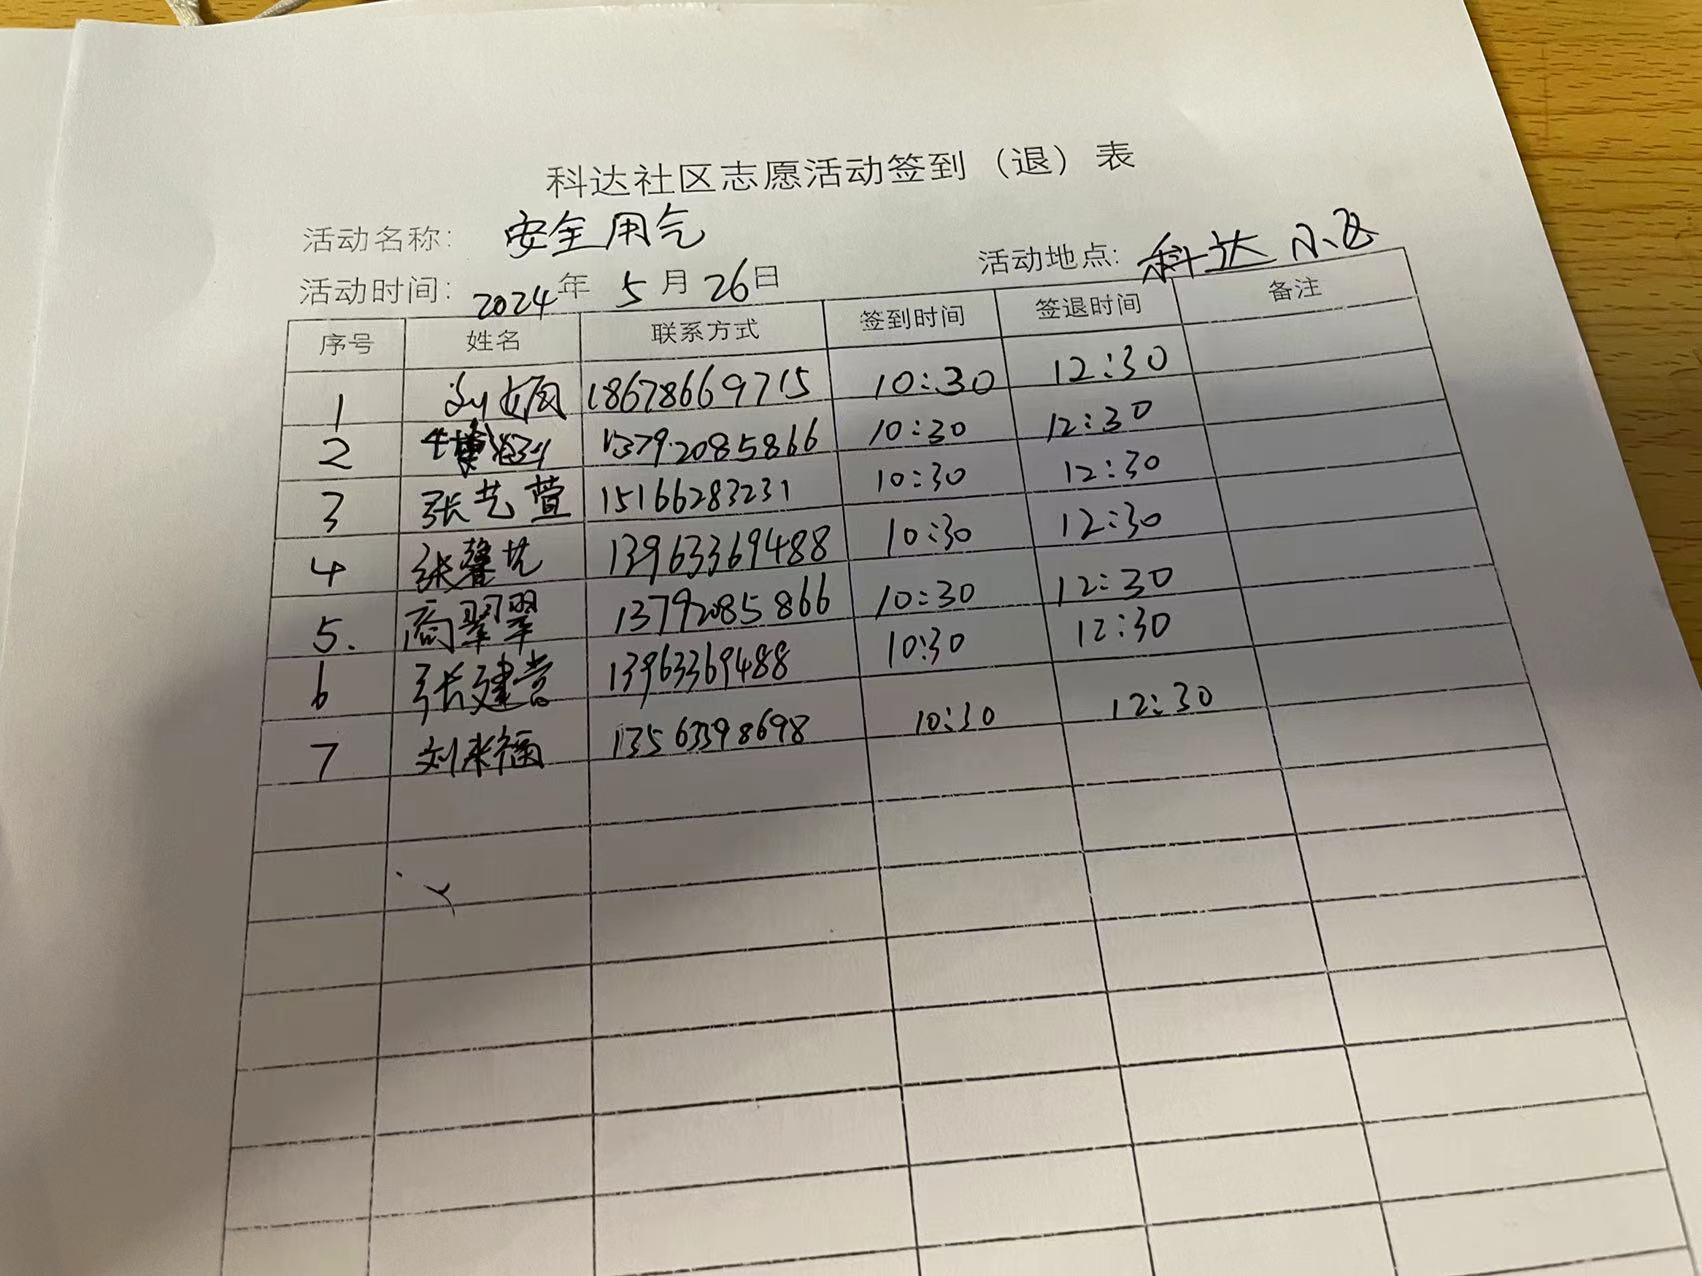 科达社区志愿活动签到（退）表
活动名称: 安全用气
活动时间: 2024年 5月 26日 活动地点: 科达小区
序号 姓名 联系方式 签到时间 签退时间 备注
1 刘 18678669715 10:30 12:30
2 13792085866 10:30 12:30
3 张艺萱 15166283231 10:30 12:30
4 张馨艺 13963369488 10:30 12:30
5. 商翠翠 13792085866 10:30 12:30
6 张建营 13963369488 10:30 12:30
7 刘来福 13563398698 10:30 12:30